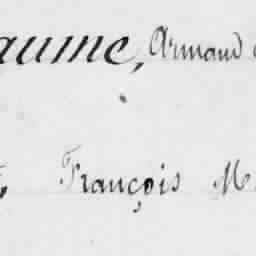 aume, Armand
François M